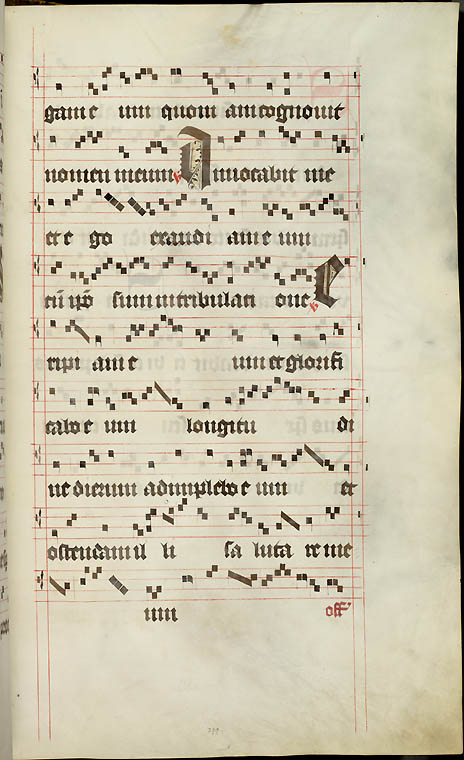 gam e um quoni am cognouit
nomen meum ℣ Inuocabit me
et e go exaudi am e um
℣ Cū ip̄o sum in tribulati one
℣ Eripi am e um et glorifi
cabo e um longitu di
ne dierum adimplebo e um et
ostendam il li sa luta re me
um off